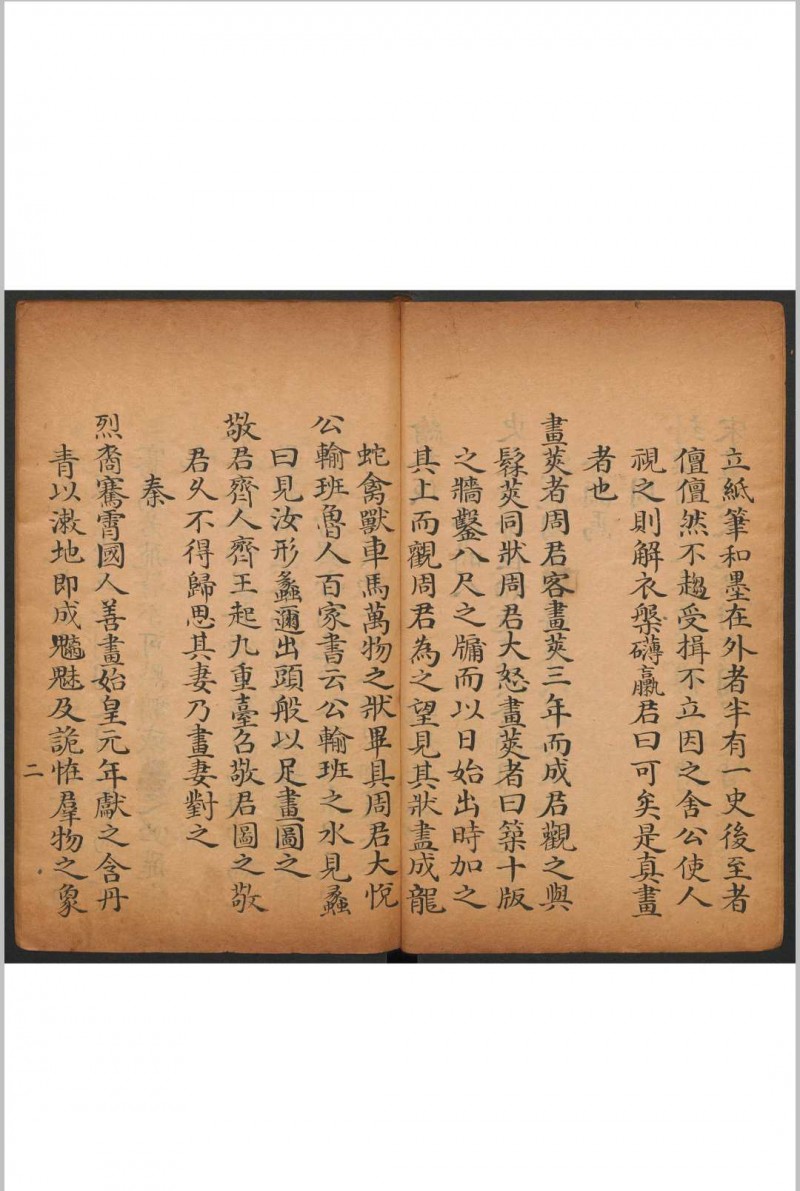 立紙筆和墨在外者半有一史後至者
儃儃然不趨受揖不立因之舍公使人
視之則解衣槃礴臝君曰可矣是真畫
者也
畫莢者周君客畫莢三年而成君觀之與
髹莢同狀周君大怒畫莢者曰築十版
之牆鑿八尺之牖而以日始出時加之
其上而觀周君為之望見其狀盡成龍
蛇禽獸車馬萬物之狀畢具周君大悅
公輸班魯人百家書云公輸班之水見蠡
曰見汝形蠡邇出頭般以足畫圖之
敬君齊人齊王起九重臺召敬君圖之敬
君久不得歸思其妻乃畫妻對之
秦
烈裔騫霄國人善畫始皇元年獻之含丹
青以漱地即成魑魅及詭恠羣物之象
二